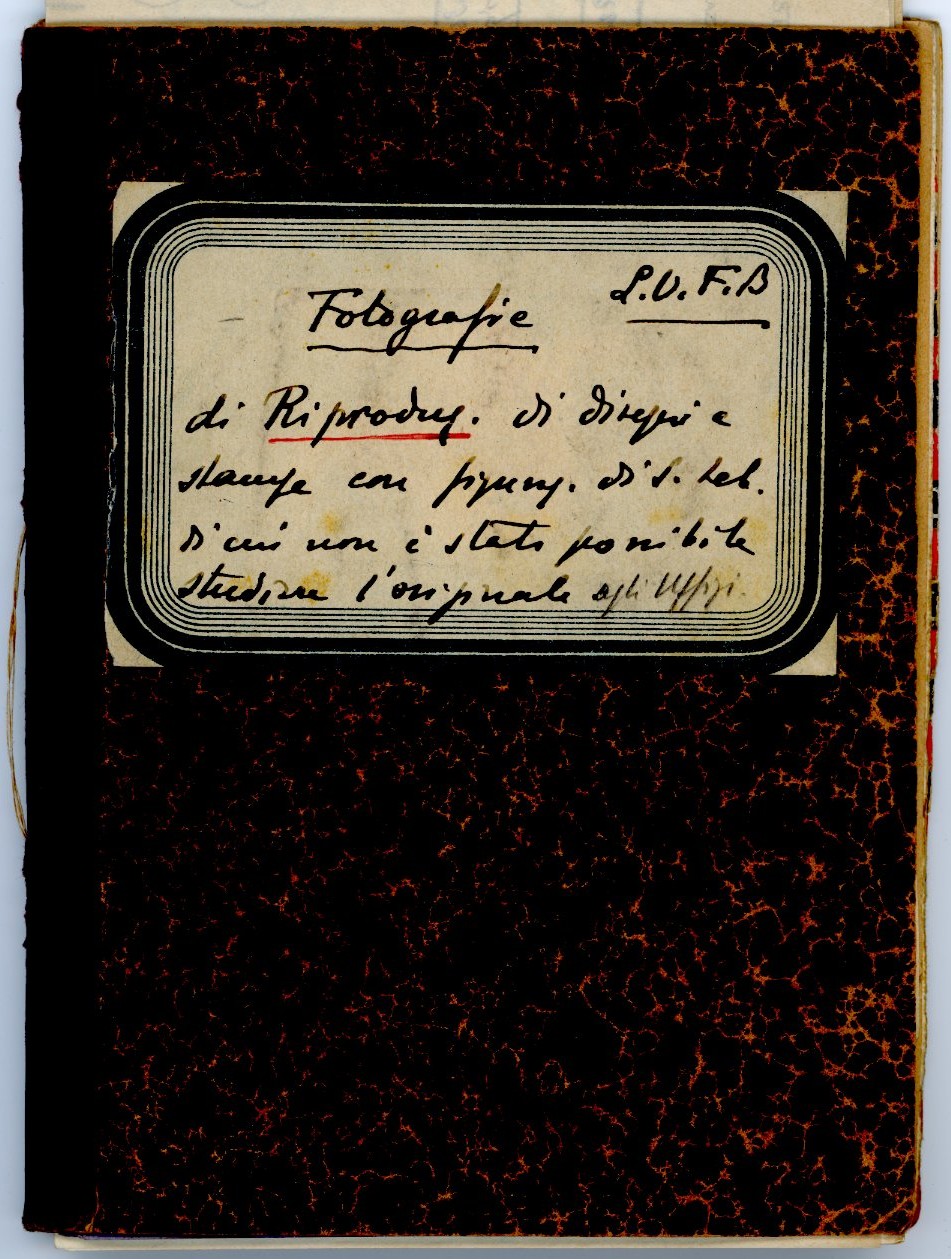 S.V.F.B
Fotografie
di Riproduz. di disegni e
stampe con figuraz. di S. Seb.
di cui non è stato possibile
studiare l'originale agli Uffizi.